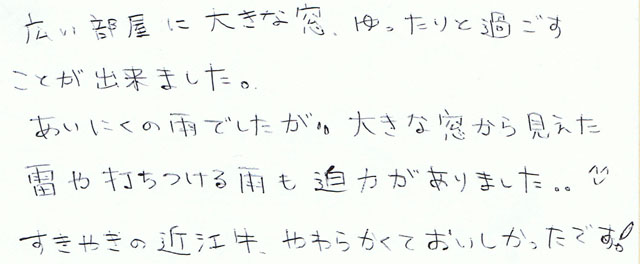 広い部屋に大きな窓、ゆったりと過ごす
ことが出来ました。
あいにくの雨でしたが。。大きな窓から見えた
雷や打ちつける雨も迫力がありました.. ^^
すきやきの近江牛、やわらかくておいしかったです!